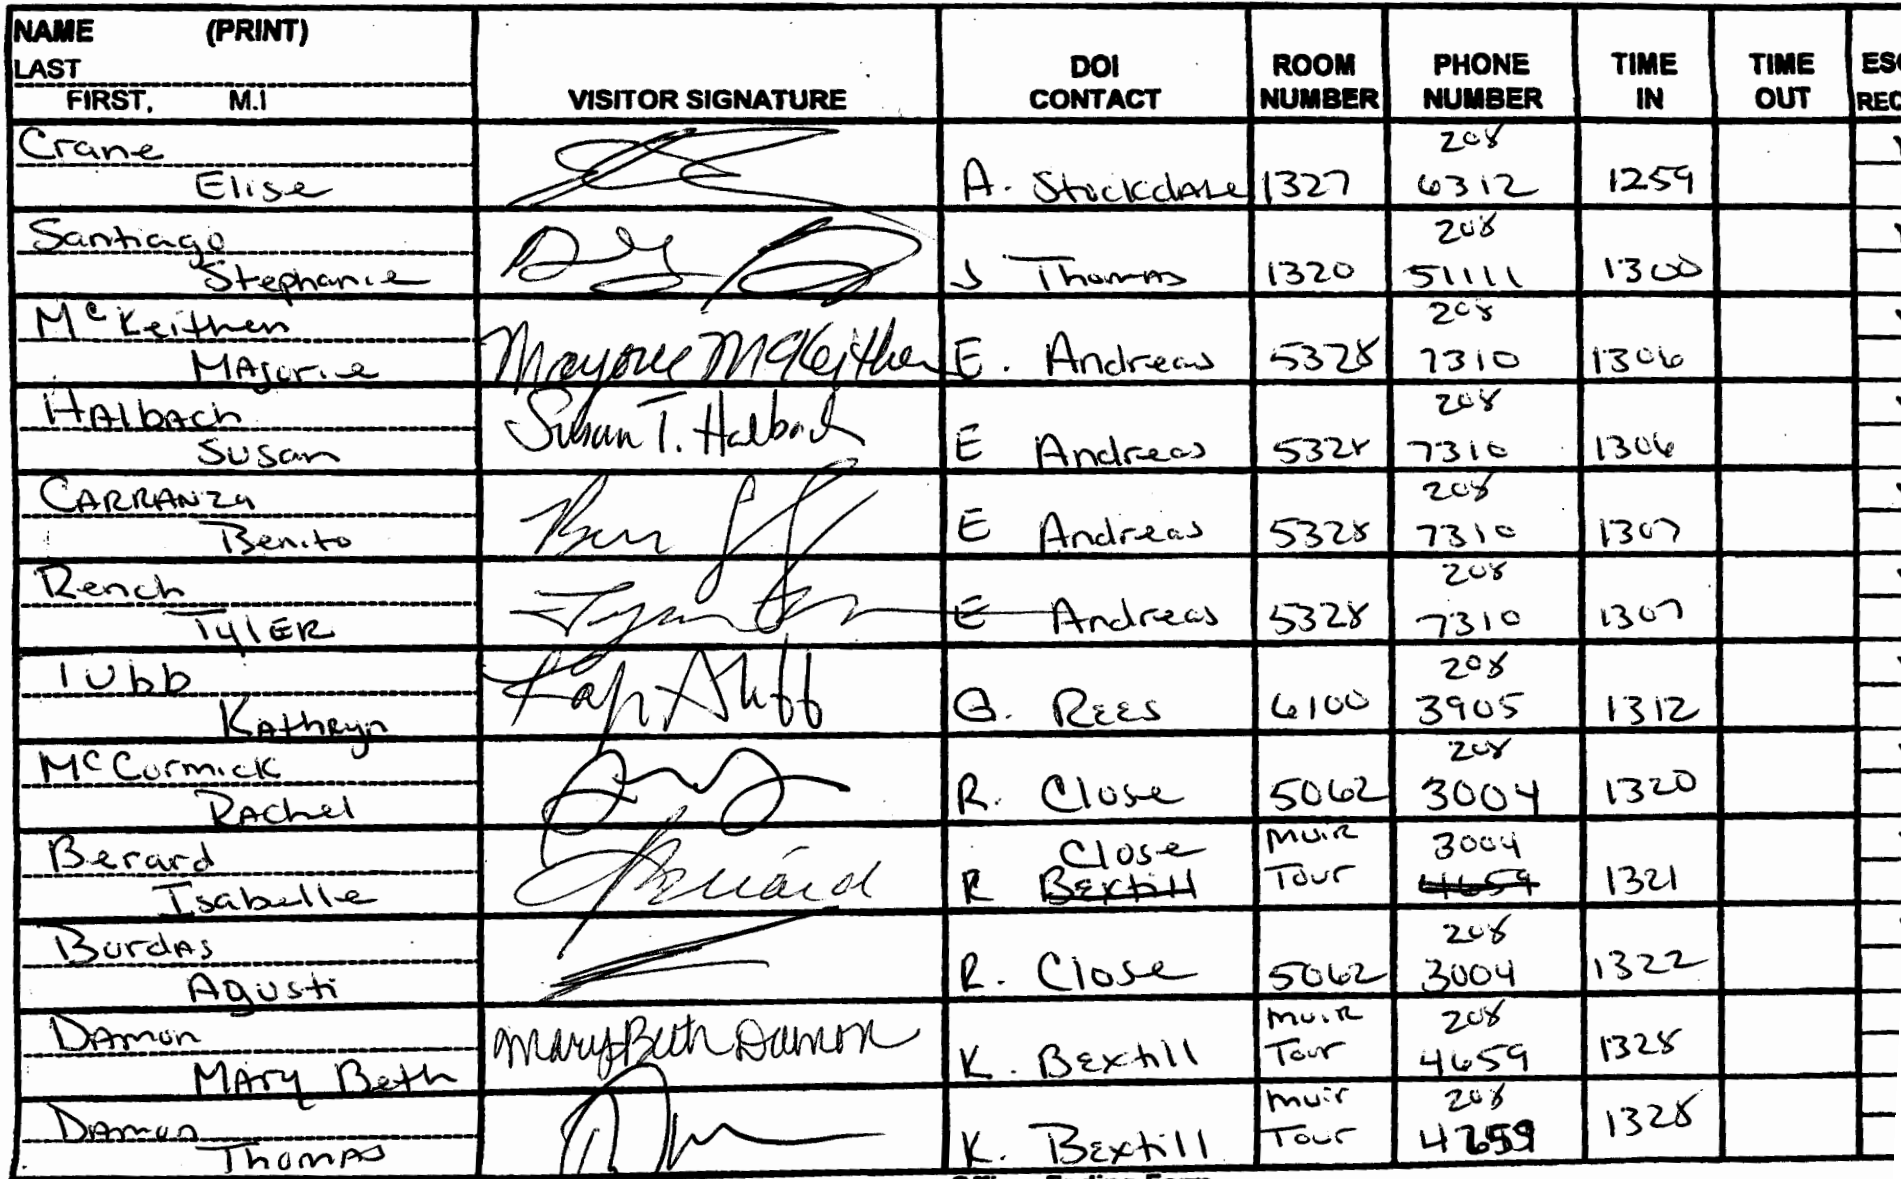 NAME (PRINT)
LAST
FIRST, M.I
VISITOR SIGNATURE
DOI
CONTACT
ROOM
NUMBER
PHONE
NUMBER
TIME
IN
TIME
OUT
Crane
Elise
A. Stockdale 1327 208 6312 1259
Santiago
Stephanie
J Thomas 1320 208 51111 1300
McKeithen
Majorie
Marjorie McKeithen E. Andreas 5328 208 7310 1306
HAlbach
Susan
Susan T. Halbach E Andreas 5328 208 7310 1306
CARRANZA
Benito
E Andreas 5328 208 7310 1307
Rench
TylER
E Andreas 5328 208 7310 1307
Tubb
KAthRyn
G. REES 6100 208 3905 1312
McCormick
RAchel
R. Close 5062 208 3004 1320
Berard
Isabelle
Berard R Close Bextill Muir Tour 3004 4659 1321
Burdas
Agusti
R. Close 5062 208 3004 1322
DAmon
MAry Beth
Mary Beth Damon K. Bextill Muir Tour 208 4659 1328
DAmon
ThomAs
K. Bextill Muir Tour 208 4659 1328